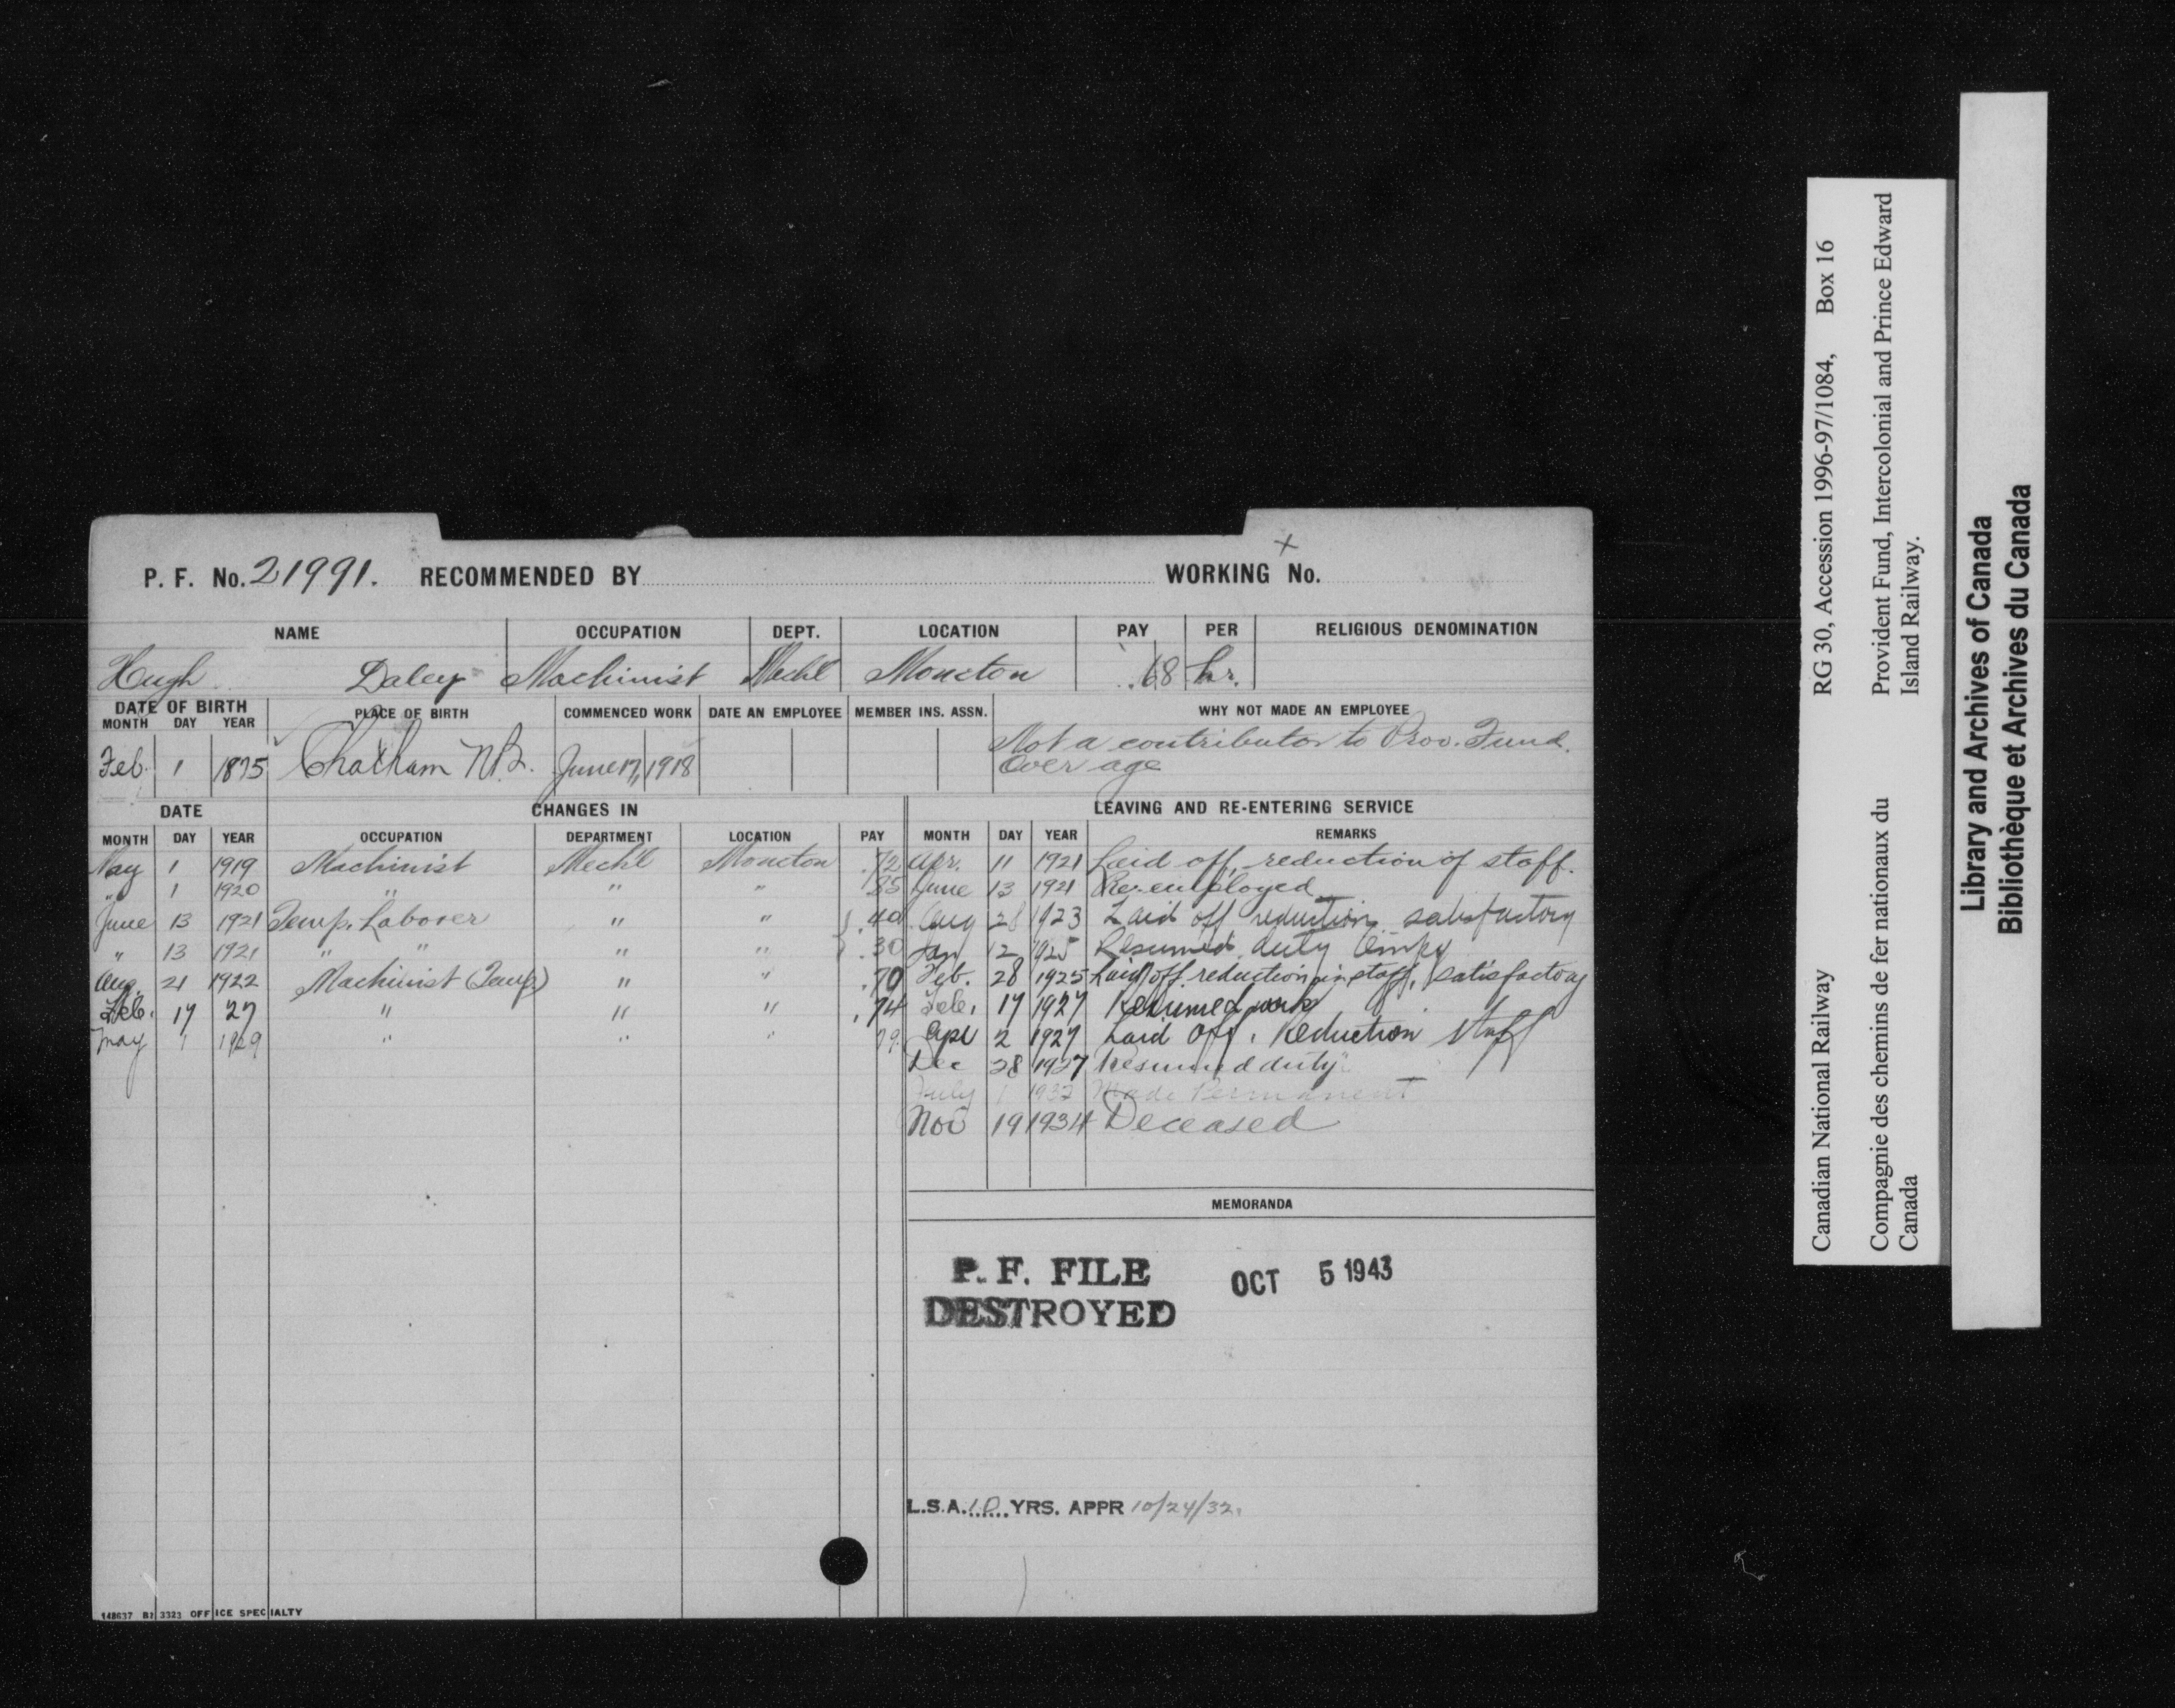 P. F. No. 21991. RECOMMENDED BY WORKING No. +
NAME OCCUPATION DEPT. LOCATION PAY PER RELIGIOUS DENOMINATION
Hugh Daley Machinist Mechl Moncton .68 hr.
DATE OF BIRTH
MONTH DAY YEAR PLACE OF BIRTH COMMENCED WORK DATE AN EMPLOYEE MEMBER INS. ASSN. WHY NOT MADE AN EMPLOYEE
Feb. 1 1875 Chatham N.B. June 17, 1918 Not a contributor to Prov. Fund.
Over age
DATE CHANGES IN LEAVING AND RE-ENTERING SERVICE
MONTH DAY YEAR OCCUPATION DEPARTMENT LOCATION PAY MONTH DAY YEAR REMARKS
May 1 1919 Machinist Mechl Moncton .72 Apr. 11 1921 Laid off, reduction of staff.
" 1 1920 " " " .85 June 13 1921 Re-employed
June 13 1921 Temp. Laborer " " .40 Aug 28 1923 Laid off reduction satisfactory
" 13 1921 " " " " .30 Jan 12 1925 Resumed duty
Aug. 21 1922 Machinist (Temp) " " .70 Feb. 28 1925 Laid off reduction in staff, satisfactory
Feb. 17 27 " " " .74 Feb. 17 1927 Resumed work
May 1 1929 " " " 79 Apl 2 1927 Laid off, Reduction staff
Dec 28 1927 Resumed duty
July 1 1932 Made Permanent
Nov 19 1934 Deceased
MEMORANDA
P. F. FILE
DESTROYED
OCT 5 1943
L.S.A. 10 YRS. APPR 10/24/32.
148637 B1 3323 OFFICE SPECIALTY
Canadian National Railway RG 30, Accession 1996-97/1084, Box 16
Compagnie des chemins de fer nationaux du
Canada
Provident Fund, Intercolonial and Prince Edward
Island Railway.
Library and Archives of Canada
Bibliothèque et Archives du Canada